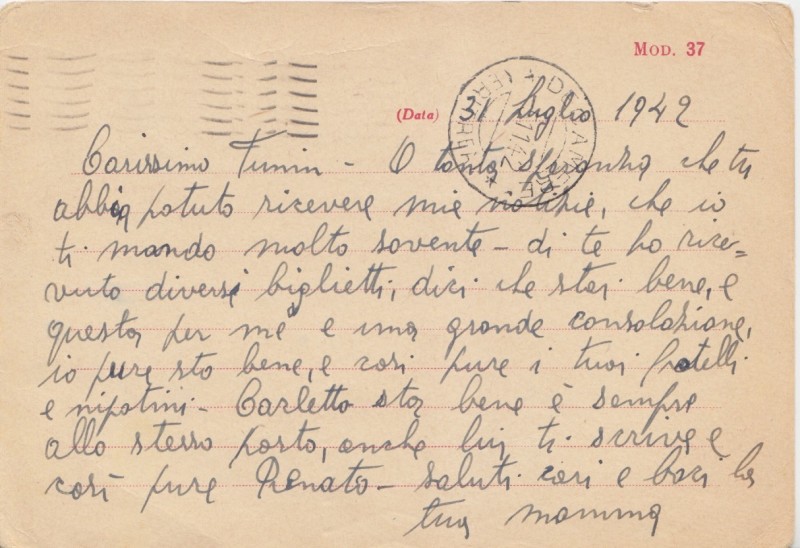 MOD. 37
(Data) 31 Luglio 1942
Carissimo Tunin - O tanta speranza che tu
abbia potuto ricevere mie notizie, che io
ti mando molto sovente - di te ho rice=
vuto diversi biglietti, dici che stai bene, e
questa per me e una grande consolazione,
io pure sto bene, e cosi pure i tuoi fratelli
e nipotini - Carletto sta bene è sempre
allo stesso posto, anche lui ti scrive e
così pure Renato - saluti cari e baci la
tua mamma